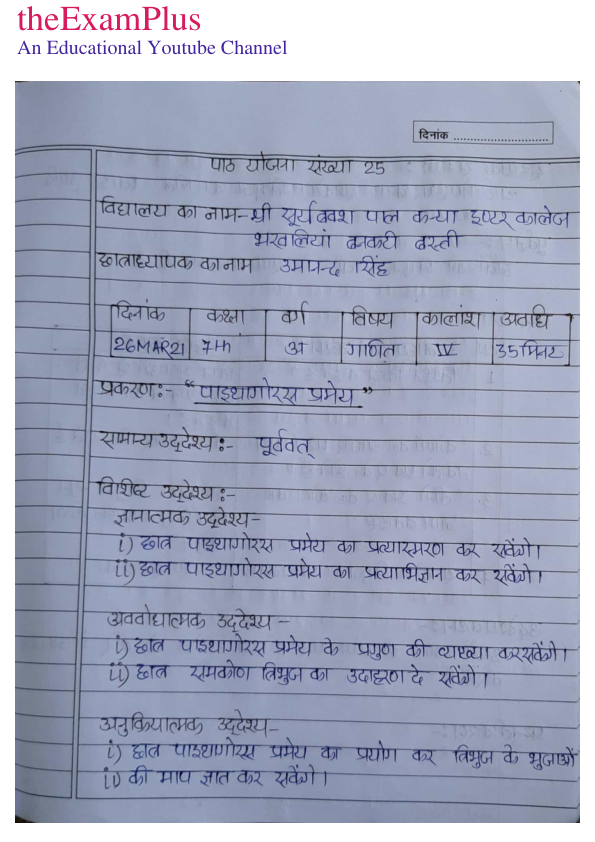 theExamPlus
An Educational Youtube Channel
दिनांक ..............................
पाठ योजना संख्या 25
विद्यालय का नाम- श्री सूर्यबक्श पाल कन्या इण्टर कालेज
बनकटी बस्ती
छात्राध्यापक का नाम उमानन्द सिंह
दिनांक कक्षा वर्ग विषय कालांश अवधि
26MAR21 7th अ गणित IV 35मिनट
प्रकरण:- “पाइथागोरस प्रमेय”
सामान्य उद्देश्य:- पूर्ववत्
विशिष्ट उद्देश्य:-
ज्ञानात्मक उद्देश्य-
i) छात्र पाइथागोरस प्रमेय का प्रत्यास्मरण कर सकेंगे।
ii) छात्र पाइथागोरस प्रमेय का प्रत्याभिज्ञान कर सकेंगे।
अवबोधात्मक उद्देश्य-
i) छात्र पाइथागोरस प्रमेय के प्रगुण की व्याख्या कर सकेंगे।
ii) छात्र समकोण त्रिभुज का उदाहरण दे सकेंगे।
अनुक्रियात्मक उद्देश्य-
i) छात्र पाइथागोरस प्रमेय का प्रयोग कर त्रिभुज के भुजाओं
ii) की माप ज्ञात कर सकेंगे।